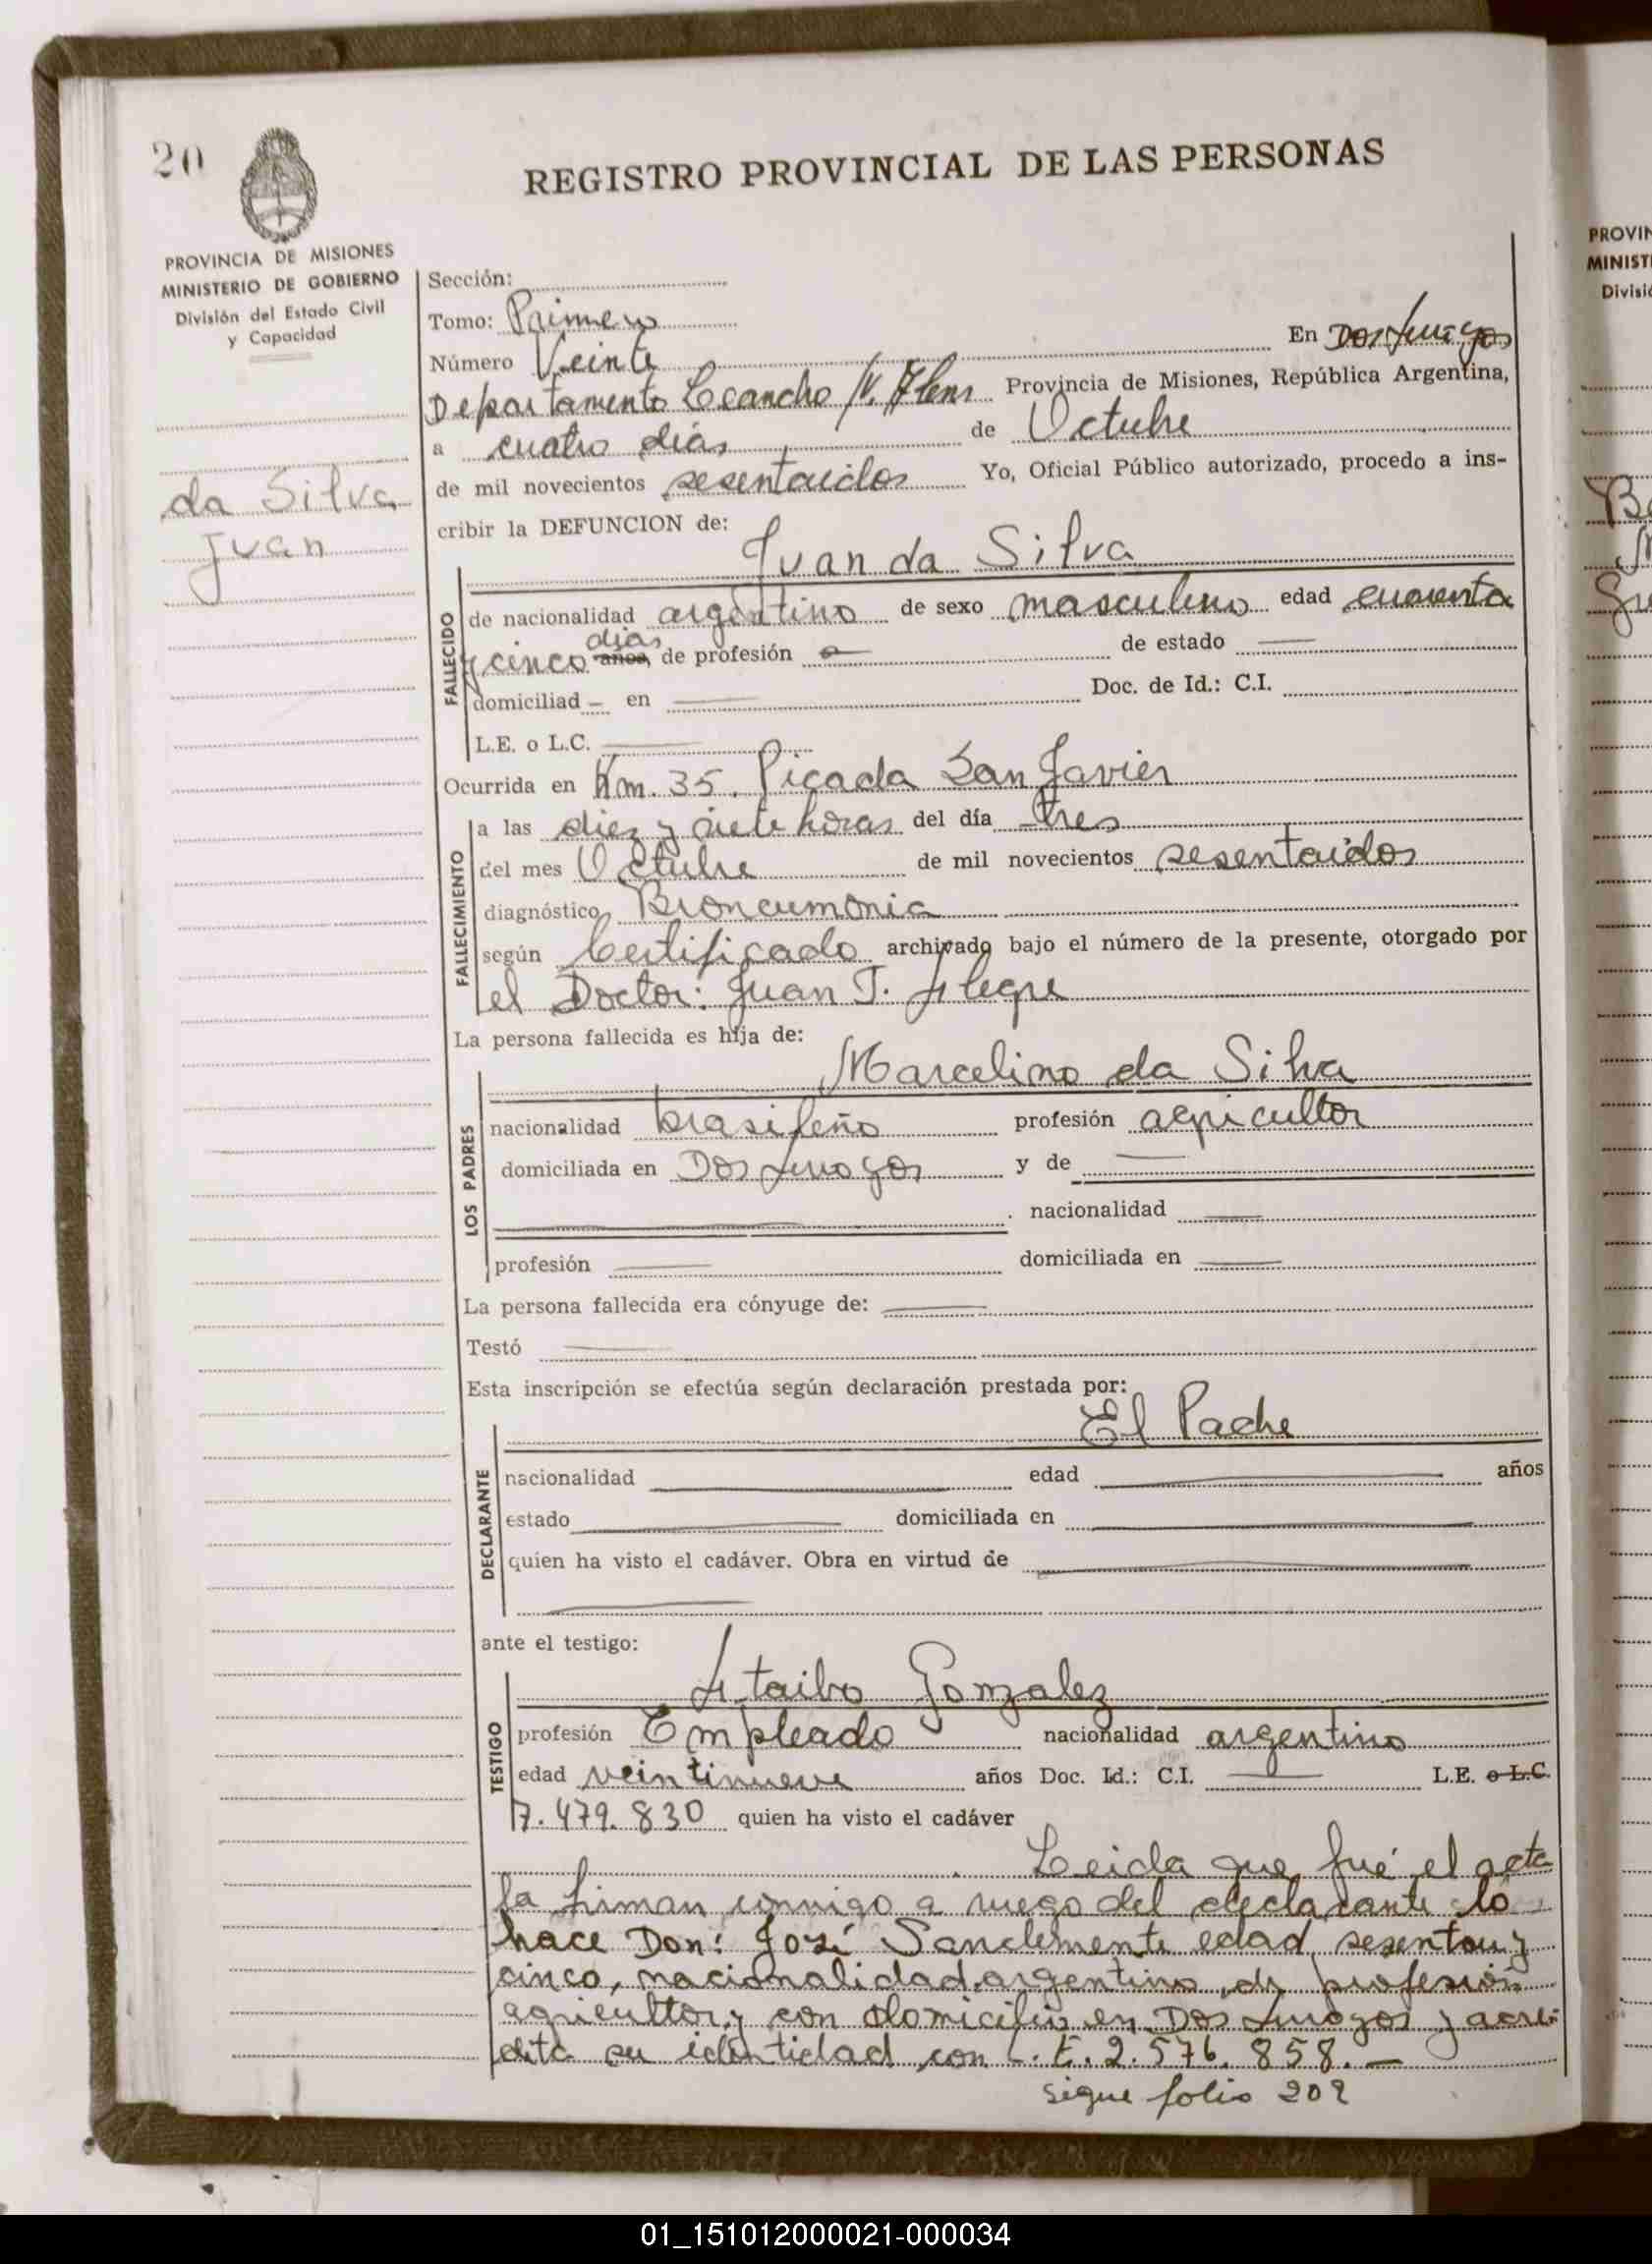 20
REGISTRO PROVINCIAL DE LAS PERSONAS
PROVINCIA DE MISIONES
MINISTERIO DE GOBIERNO
División del Estado Civil
y Capacidad
da Silva
Juan
Sección:
Tomo: Primero
Número Veinte En Dos Arroyos
Departamento Leandro N. Alem Provincia de Misiones, República Argentina,
a cuatro días de Octubre
de mil novecientos sesentaidos Yo, Oficial Público autorizado, procedo a ins-
cribir la DEFUNCION de:
Juan da Silva
FALLECIDO
de nacionalidad argentino de sexo masculino edad cuarenta
y cinco días años, de profesión — de estado —
domiciliad — en — Doc. de Id.: C.I.
L.E. o L.C. —
Ocurrida en Km. 35. Picada San Javier
FALLECIMIENTO
a las diez y siete horas del día tres
del mes Octubre de mil novecientos sesentaidos
diagnóstico Broncumonia
según Certificado archivado bajo el número de la presente, otorgado por
el Doctor: Juan T. Alegre
La persona fallecida es hija de:
LOS PADRES
Marcelino da Silva
nacionalidad brasileño profesión agricultor
domiciliada en Dos Arroyos y de —
— nacionalidad —
profesión — domiciliada en —
La persona fallecida era cónyuge de: —
Testó —
Esta inscripción se efectúa según declaración prestada por:
DECLARANTE
El Padre
nacionalidad — edad — años
estado — domiciliada en —
quien ha visto el cadáver. Obra en virtud de —
—
ante el testigo:
TESTIGO
Gonzalez
profesión Empleado nacionalidad argentino
edad veintinueve años Doc. Id.: C.I. — L.E. o L.C.
7.479.830 quien ha visto el cadáver
Leida que fué el acta
la firman conmigo a ruego del declarante lo
hace Don: José Sanclemente edad sesentay
cinco, nacionalidad argentino, de profesión
agricultor y con domicilio en Dos Arroyos y acre-
dita su identidad con L.E. 2.576.858. —
sigue folio 202
PROVIN
MINIST
Divisió
01_151012000021-000034